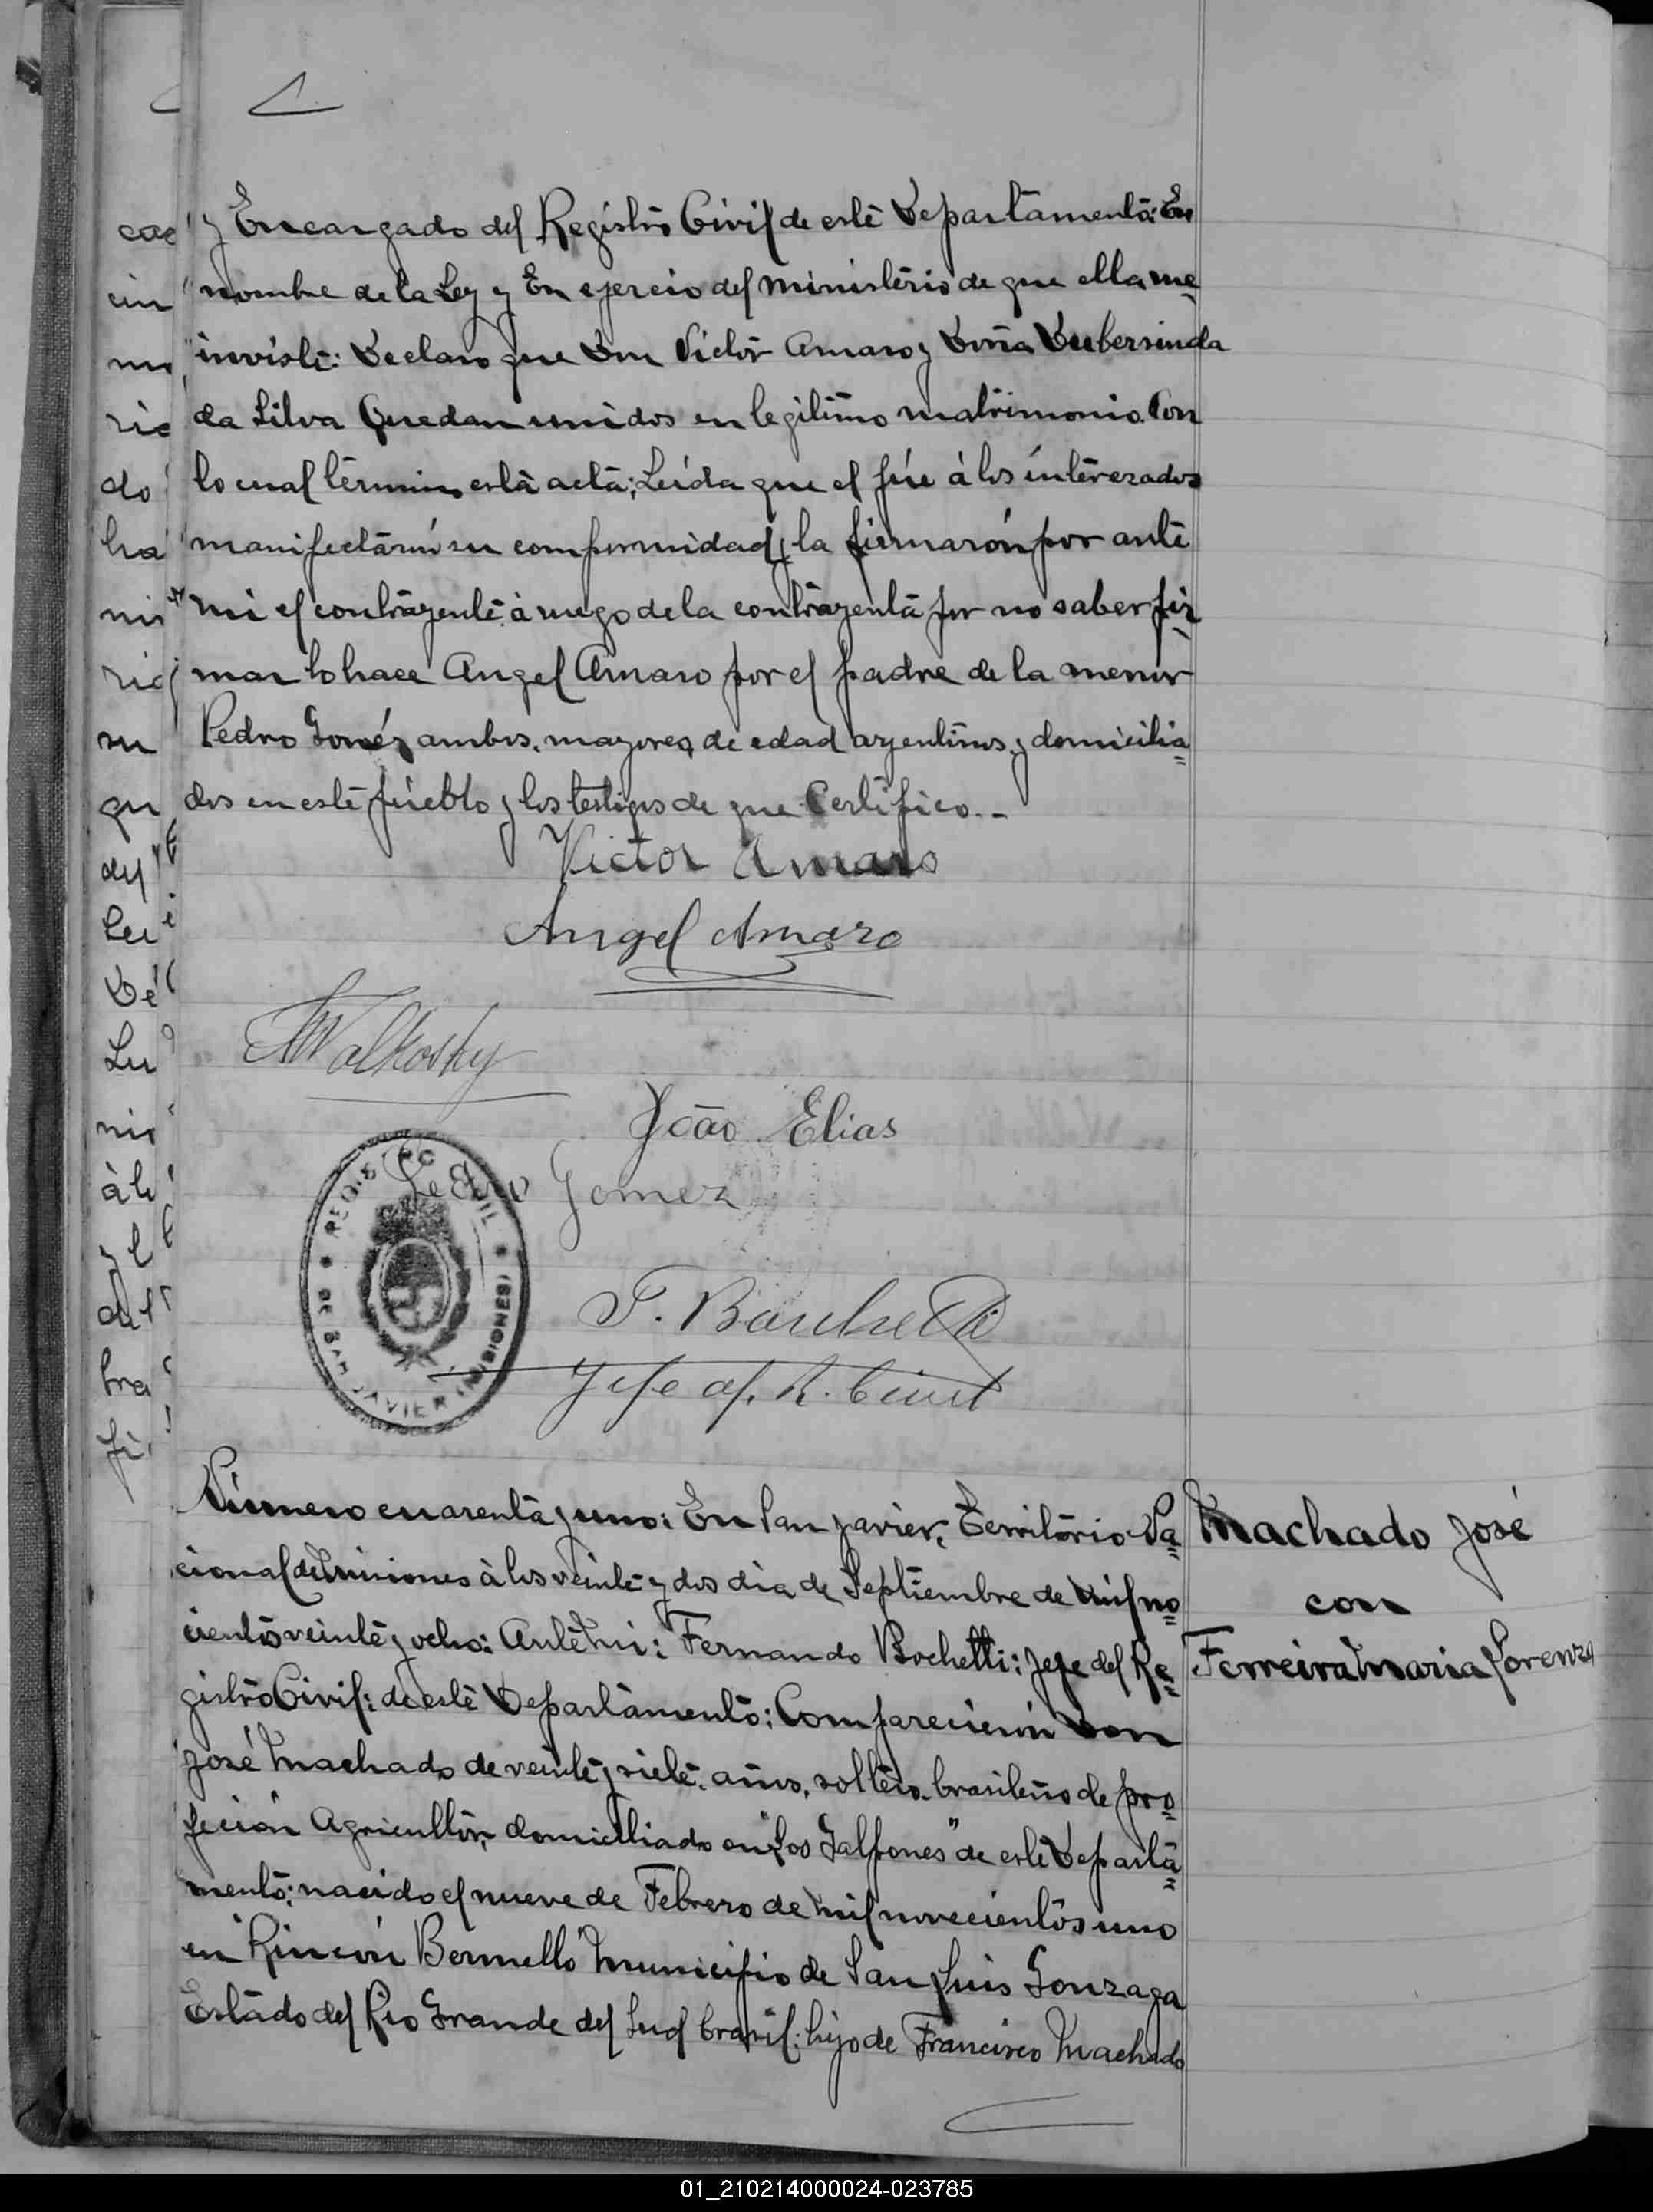 y Encargado del Registro Civil de este Departamento: En
nombre de la Ley y En ejercio del Ministerio de que ella me
inviste: Declaro que Don Victor Amaro y Doña Dubersinda
da Silva Quedan unidos en legitimo matrimonio. Con
lo cual termino esta acta; Leida que el fúe á los interezados
manifestarón su conformidad y la firmarón por ante
mi el contrayente à ruego de la contrayenta por no saber fir
mar lo hace Angel Amaro por el padre de la menor
Pedro Goméz ambos, mayores de edad argentinos y domicilia=
dos en este púeblo y los testigos de que Certifico.-
Victor Amaro
Angel Amaro
Walkosky
João Elias
Pedro Gomez
REGISTRO CIVIL
DE SAN JAVIER (MISIONES)
F. Bochetti
Jefe of. R. Civil
Número cuarenta y uno: En San Javier, Territorio Na=
cional de Misiones à los veinte y dos dia de Septiembre de Mil no=
ciento veinte y ocho: Ante Mi: Fernando Bochetti: Jefe del Re=
gistro Civil: de este Departamento: Comparecierón Don
José Machado de veinte y siete años, soltero brasileño de pro=
feción Agricultór, domicilliado en "Los Galpones" de este Departa=
mento; nacido el nueve de Febrero de Mil novecientos uno
en Rincón Bermello Municipio de San Luis Gonzaga
Estado del Rio Grande del Sud brasil: hijo de Francisco Machado
Machado José
con
Ferreira Maria Lorenza
01_210214000024-023785